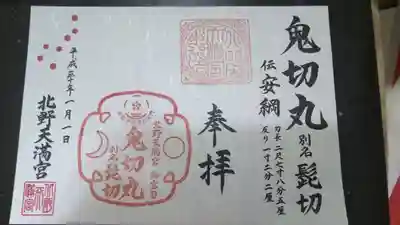 鬼切丸 別名 髭切
伝 安綱
刃長 二尺七寸八分五厘
反り 一寸二分二厘
奉拝
北野天満宮 御宝刀
鬼切丸
別名 髭切
平成三十年一月一日
北野天満宮